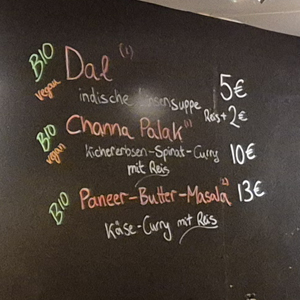 BIO Dal (1)
vegan indische Linsensuppe 5€
Reis + 2€
BIO Channa Palak (1)
vegan Kichererbsen-Spinat-Curry 10€
mit Reis
BIO Paneer-Butter-Masala 13€
Käse-Curry mit Reis